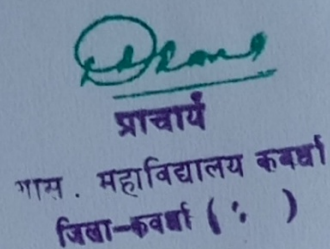 प्राचार्य
शास . महाविद्यालय कवर्धा
जिला-कवर्धा ( )